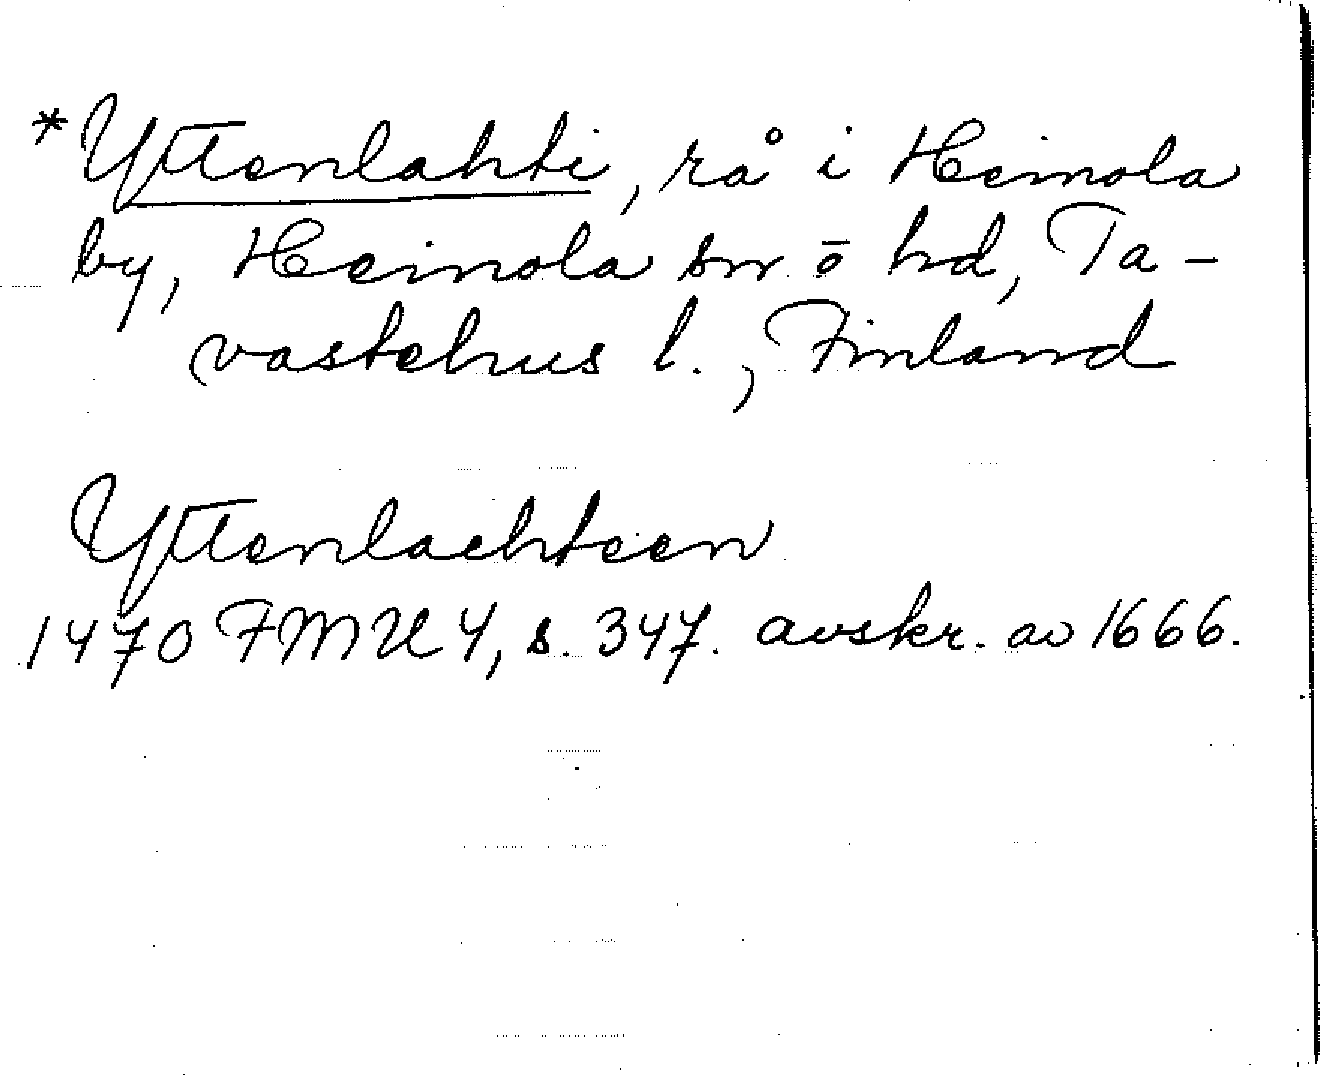 *Yttenlahti, rå i Heinola
by, Heinola sn ō hd, Ta-
vastehus l., Finland
Yttenlachteen
1470 FMU 4, s. 347. avskr. av 1666.